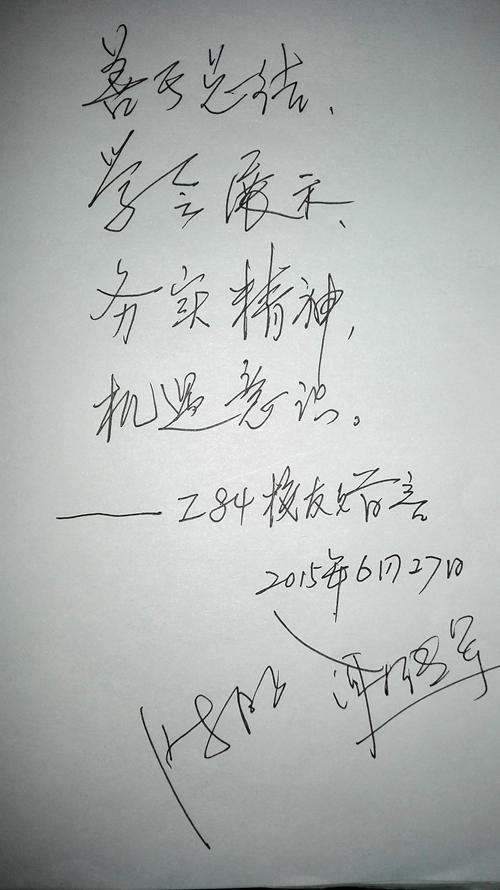 善于总结、
学会展示、
务实精神,
机遇意识。
——Z84校友留言
2015年6月27日